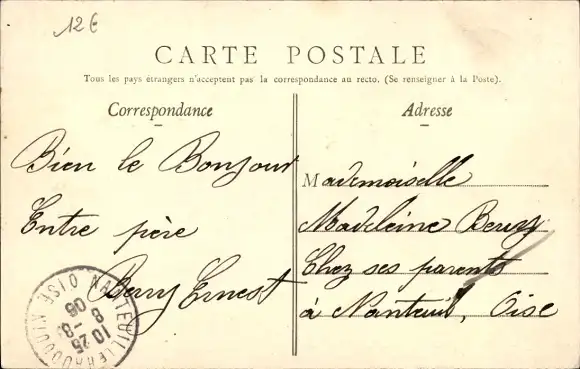 12 €
CARTE POSTALE
Tous les pays étrangers n'acceptent pas la correspondance au recto. (Se renseigner à la Poste).
Correspondance
Bien le Bonjour
Entre père
Berry Ernest
Adresse
Mademoiselle
Madeleine Berry
Chez ses parents
à Nanteuil, Oise
NANTEUIL-LE-HAUDOUIN OISE
10 25
8 -8
06